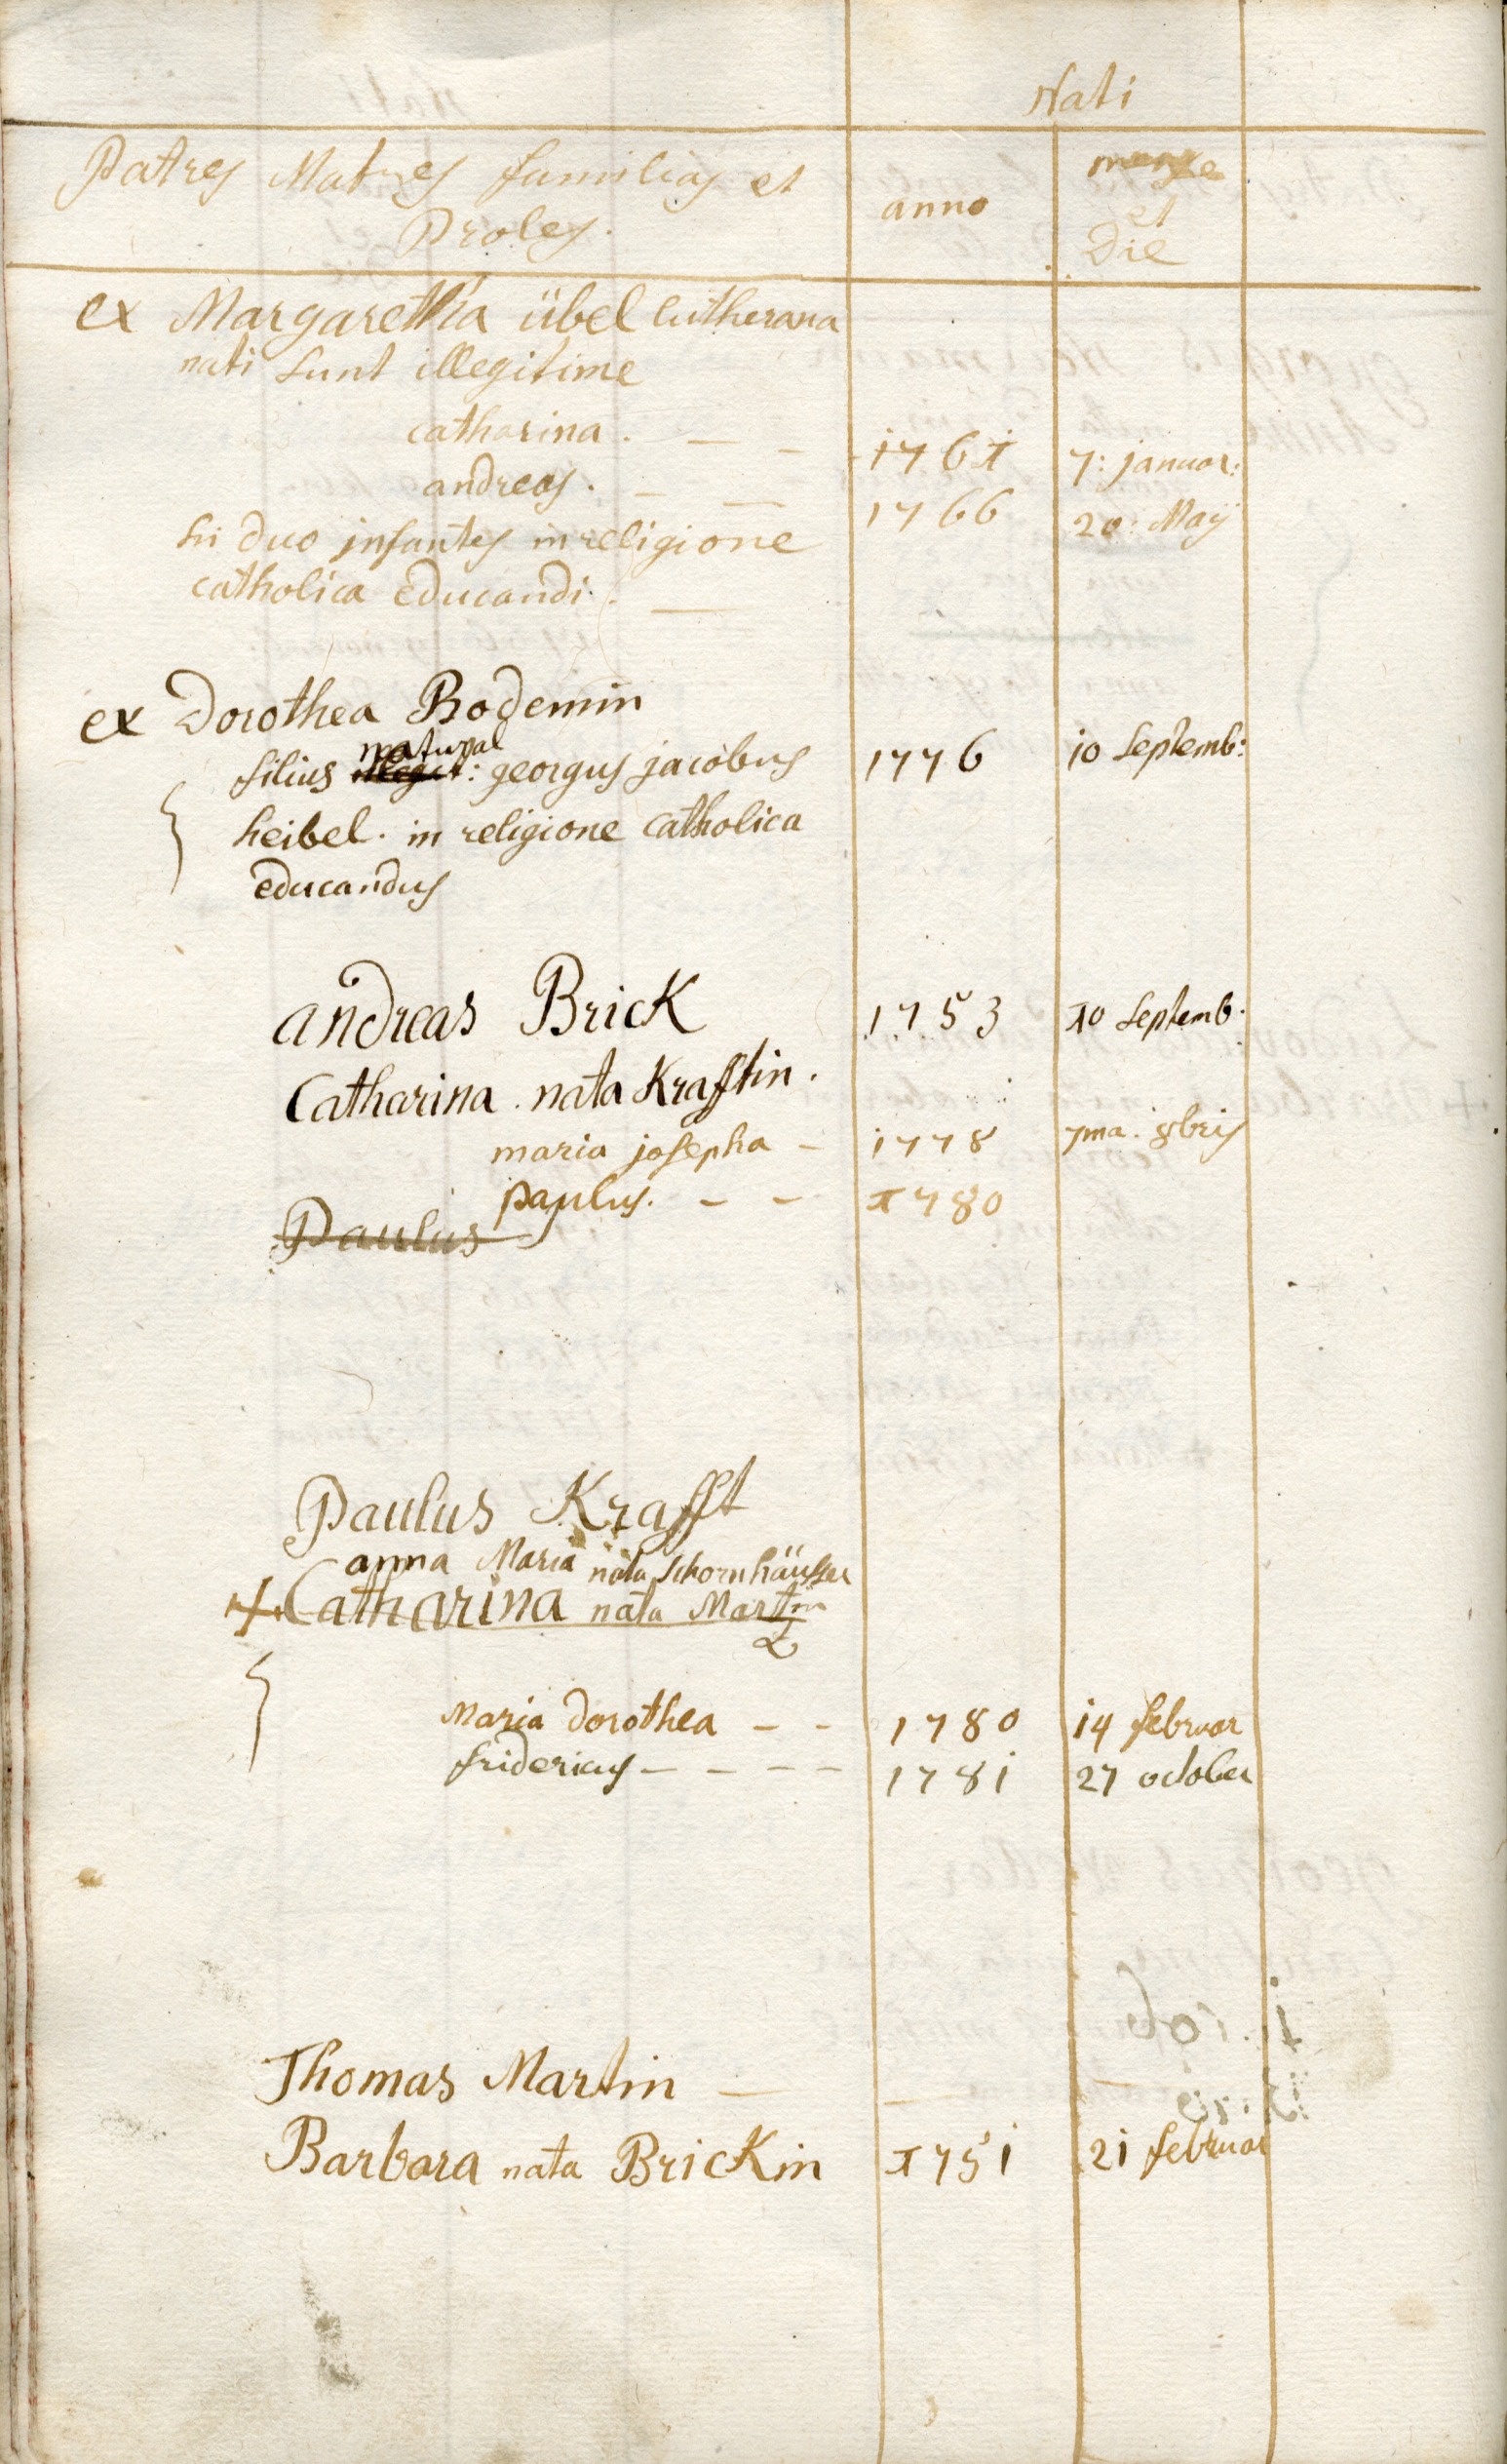 Nati
Patres Matres familias et
Proles.
anno
mense
et
Die
ex Margaretha übel lutherana
nati sunt illegitime
catharina. — — 1761 7: januar:
andreas. — — 1766 20: Maÿ
hi duo infantes in religione
catholica educandi. —
ex Dorothea Bodemin
natural
filius illegit: georgus jacobus 1776 10 Septemb:
heibel. in religione catholica
educandus
andreas Brick 1753 10 Septemb.
Catharina nata Krafftin.
maria josepha — 1778 7ma. 8bris
paulus. — — 1780
Paulus
Paulus Krafft
anna Maria nata Schornhäusser
+ Catharina nata Martin
Maria Dorothea — — 1780 14 februar
fridericus — — — — 1781 27 october
Thomas Martin — —
Barbara nata Brickin 1751 21 februar